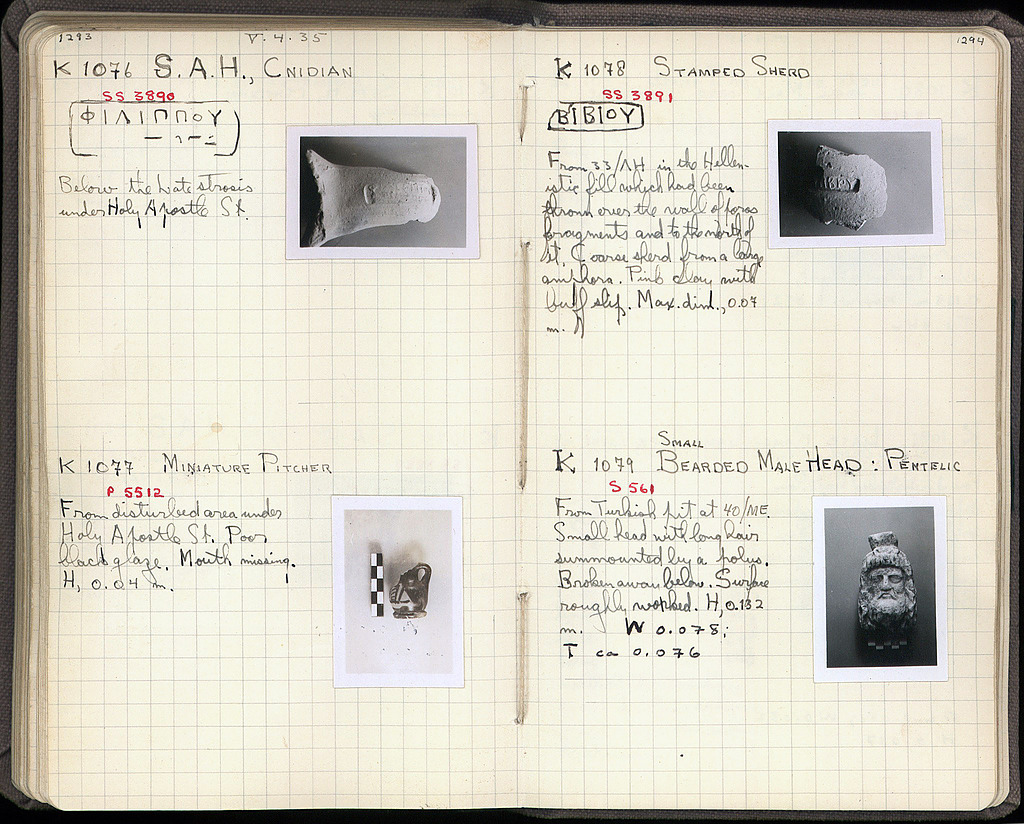 1293
V. 4. 35
K 1076 S.A.H., CNIDIAN
SS 3890
ΦΙΛΙΠΠΟΥ
Below the Late strosis
under Holy Apostle St.
K 1077 MINIATURE PITCHER
P 5512
From disturbed area under
Holy Apostle St. Poor
black glaze. Mouth missing.
H, 0.04 m.
1294
K 1078 STAMPED SHERD
SS 3891
ΒΙΒΙΟΥ
From 33/ΛΗ in the Hellen-
istic fill which had been
thrown over the wall of poros
fragments and to the north of
it. Coarse sherd from a large
amphora. Pink clay with
buff slip. Max. dim., 0.07
m.
SMALL
K 1079 BEARDED MALE HEAD : PENTELIC
S 561
From Turkish pit at 40/ΜΕ.
Small head with long hair
surmounted by a polus.
Broken away below. Surface
roughly worked. H, 0.132
m. W 0.078;
T ca 0.076